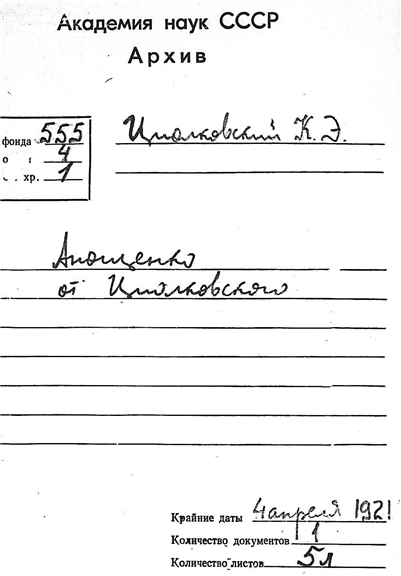 Академия наук СССР
Архив
фонда 555
о 4
хр. 1
Циолковский К.Э.
Анощенко
от Циолковского
Крайние даты 4 апреля 1921
Количество документов 1
Количество листов 5л